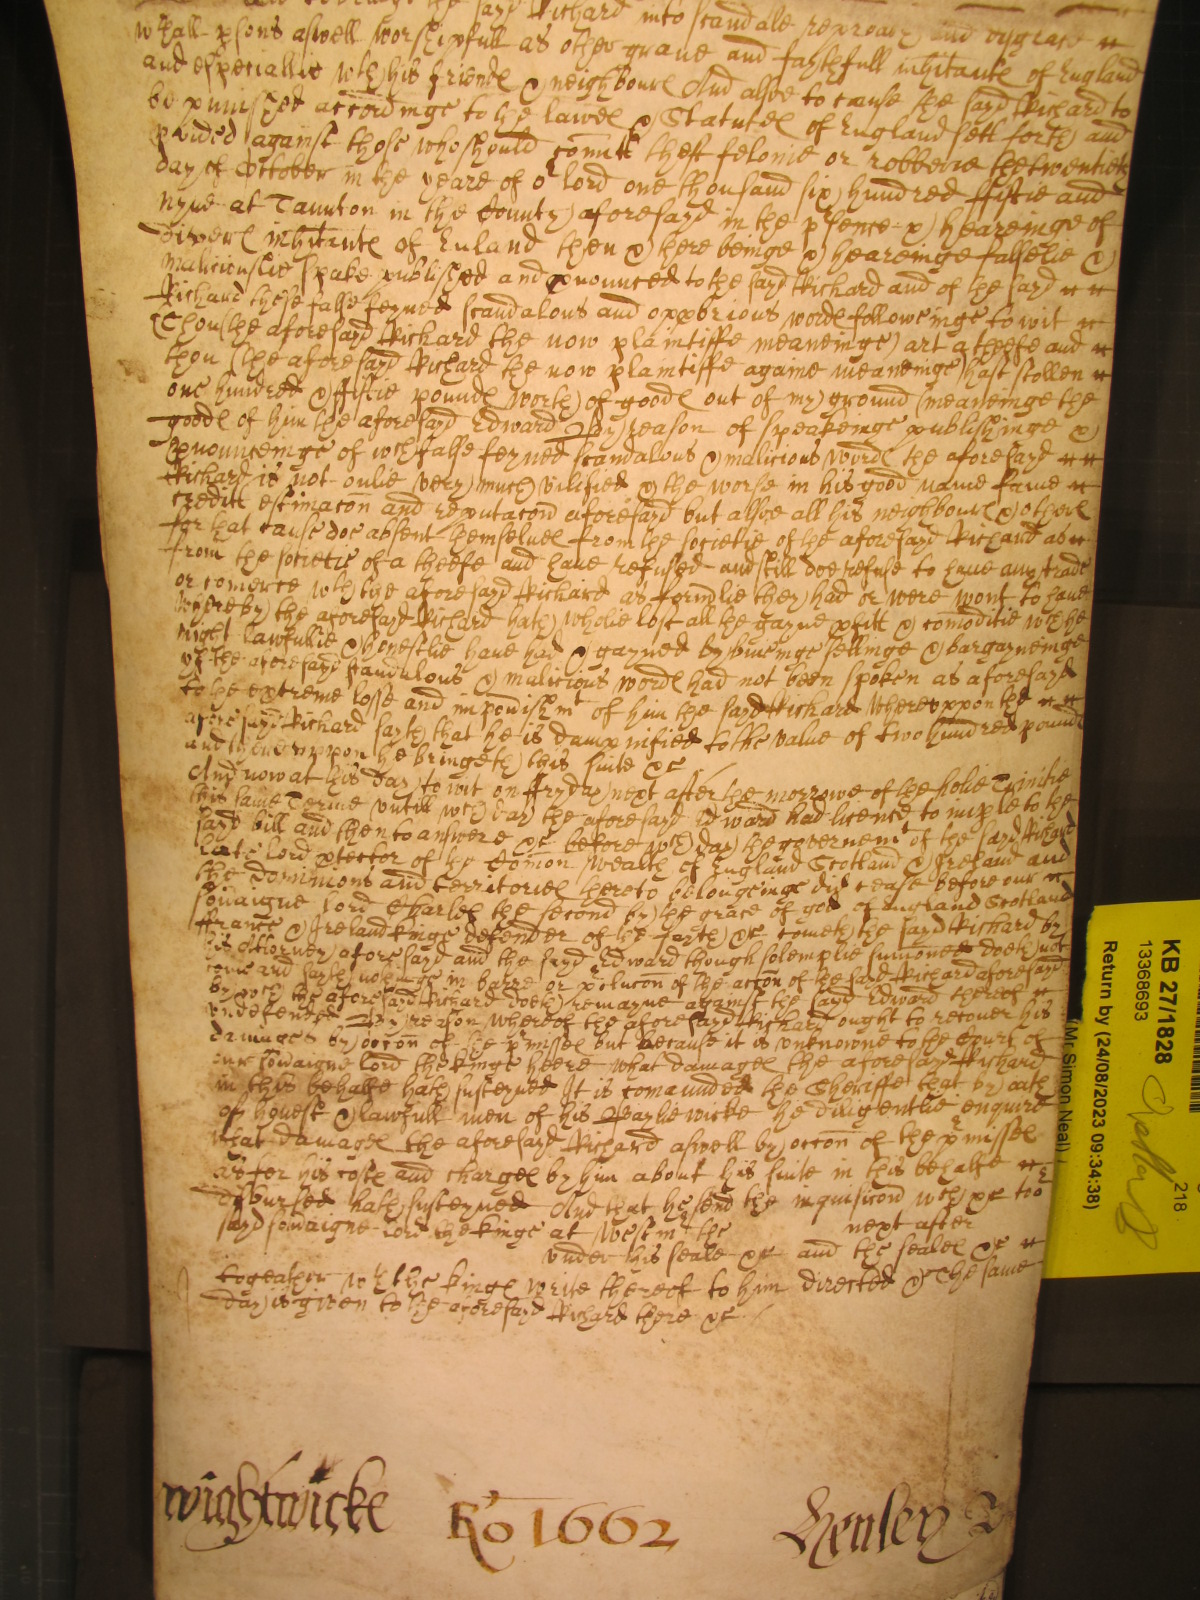 the sayd Richard into scandale reproach and disgrace
wth all psons aswell worshippfull as other graue and faythfull inhitantℓ of England
and especiallie wth his friendℓ & neighbourℓ And alsoe to cause the sayd Richard to
be punished accordinge to the lawes & Statutℓ of England sett forth and
pvided against those who should comitt theft felonie or robberie the twentieth
day of October in the yeare of or lord one thousand six hundred fiftie and
nyne at Taunton in the County aforesayd in the psence & heareinge of
diverℓ inhitantℓ of England then & there beinge & heareinge falselie &
maliciouslie spake published and pnounced to the sayd Richard and of the sayd
Richard these false feyned scandalous and opprobrious wordℓ followeinge to wit
Thou (the aforesayd Richard the now plaintiffe meaneinge) art a theefe and
thou (the aforesayd Richard the now plaintiffe againe meaneinge) hast stollen
one hundred & fiftie poundℓ worth of goodℓ out of my ground (meaneinge the
goodℓ of him the aforesayd Edward By reason of speakeinge publishinge &
pnounceinge of wch false feyned scandalous & malicious wordℓ the aforesayd
Richard is not onlie very much vilified & the worse in his good name fame
creditt estimacon and reputacon aforesayd but alsoe all his neighbourℓ & otherℓ
for that cause doe absent themselueℓ from the societie of the aforesayd Richard as
from the societie of a theefe and haue refused and still doe refuse to haue any trade
or comerce wth the aforesayd Richard as formlie they had or were wont to haue
whereby the aforesayd Richard hath wholie lost all the gayne pfitt & comoditie wch he
might lawfullie & honestlie haue had & gayned by bueinge sellinge & bargayneinge
yf the aforesayd scandulous & malicious wordℓ had not been spoken as aforesayd
to the extreme losse and impovishmt of him the sayd Richard Whereuppon the
aforesayd Richard sayth that he is dampnified to the value of two hundred poundℓ
and thereuppon he bringeth this suite &c
And now at this day to wit on ffryday next after the morrowe of the holie Trinitie
this same Terme vntill wch day the aforesayd Edward had licence to imple to the
sayd bill and then to answere &c before wch day the governemt of the sayd Richard
late lord ptector of the Comon wealth of England Scotland & Ireland and
the dominions and territorieℓ thereto belongeinge did cease before our
sovaigne lord Charleℓ the second by the grace of god of England Scotland
ffrance & Ireland kinge defender of the fayth &c cometh the sayd Richard by
his Attorney aforesayd and the sayd Edward though solemplie sumoned doeth not
come and sayth nothinge in barre or pclucon of the accon of the sayd Richard aforesayd
by wch the aforesayd Richard doeth remayne against the sayd Edward thereof
vndefended By reason whereof the aforesayd Richard ought to recouer his
damages by occon of the pmisseℓ but because it is vnknowne to the Court of
our sovaigne lord the kinge heere what damageℓ the aforesayd Richard
in this behalfe hath susteyned It is comaunded the Sheriffe that by oath
of honest & lawfull men of his Baylewicke he diligentlie enquire
what damageℓ the aforesayd Richard aswell by occon of the pmisseℓ
as for his costℓ and chargeℓ by him about his suite in this behalfe
disbursed hath susteyned And that he send the inquisicon wch &c to or
sayd sovaigne lord the kinge at Westm the next after
vnder his seale &c and the sealeℓ &c
togeather wth the kingℓ write thereof to him directed &c The same
day is given to the aforesayd Richard there &c
Wightwicke Ro 1662 Henley
KB 27/1828
13368693
218
Return by (24/08/2023 09:34:38)
(Mr Simon Neal)